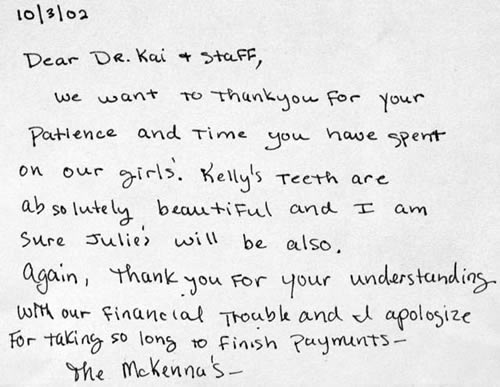 10/3/02
Dear Dr. Kai + Staff,
we want to Thankyou For your
Patience and Time you have spent
on our girls'. Kelly's Teeth are
absolutely beautiful and I am
Sure Julie's will be also.
Again, Thank you For your understanding
with our Financial Trouble and I apologize
For taking so long to Finish Paymunts-
The McKenna's-